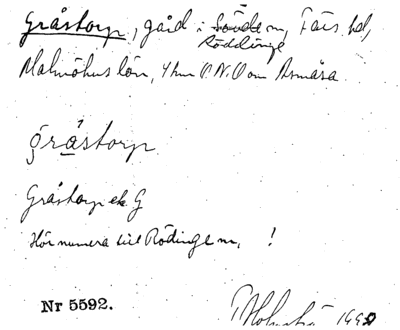 Gråstorp, gård i Sövde m, Färs hd,
Röddinge
Malmöhus län, 4 km O.N.O om Asmåra.
gråstorp
Gråstorp ek. G
Hör numera till Rödinge m, !
Nr 5592.